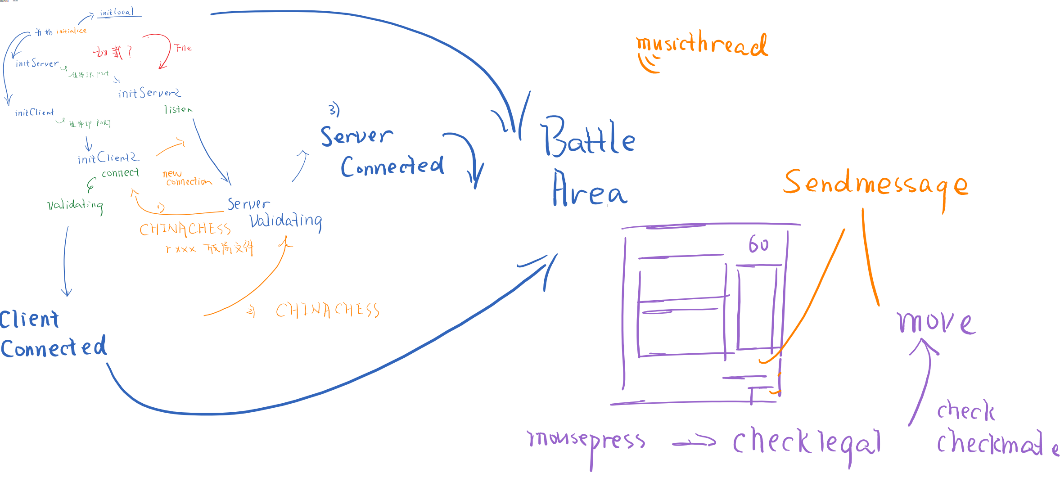 initlocal
initialize
加载?
File
initServer
initServer2
listen
initClient
initClient2
connect
new
connection
Validating
Server
Validating
CHINACHESS
r xxx
2) CHINACHESS
3)
Server
Connected
Client
Connected
musicthread
Battle
Area
60
Sendmessage
move
mousepress → checklegal
check
checkmate